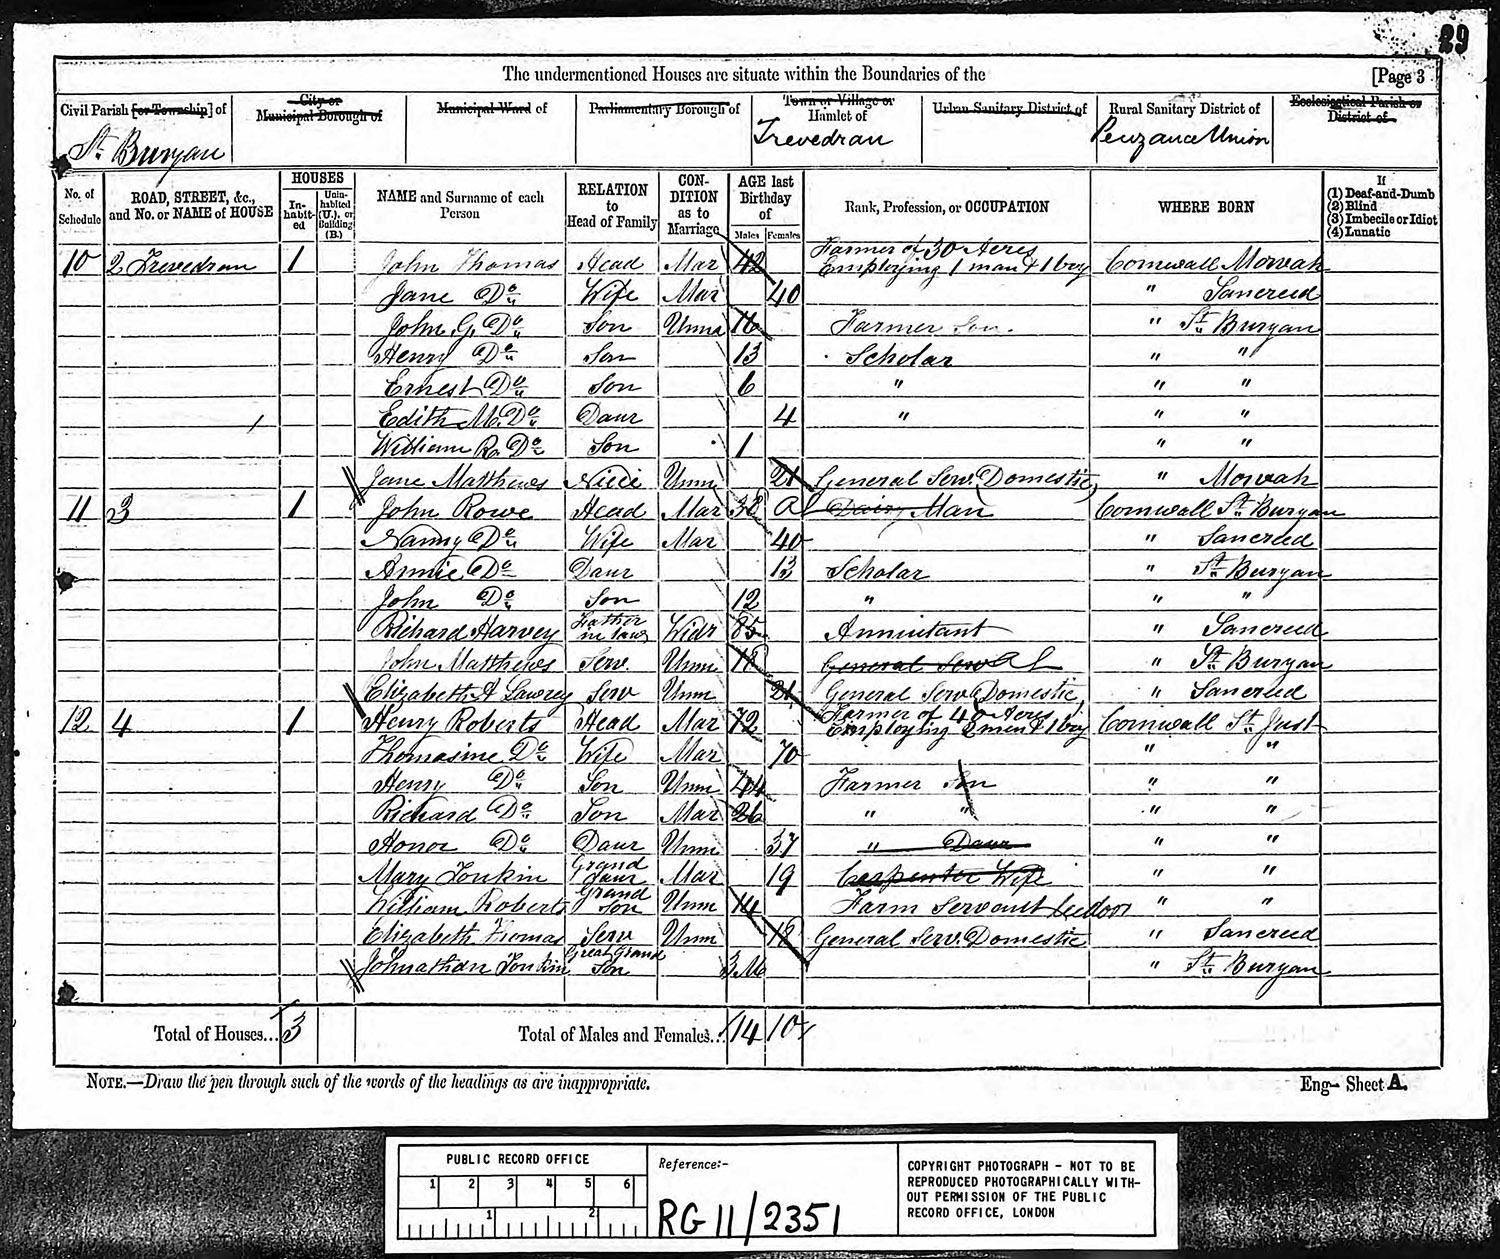 29
The undermentioned Houses are situate within the Boundaries of the [Page 3
Civil Parish [or Township] of City or Municipal Borough of Municipal Ward of Parliamentary Borough of Town or Village or Hamlet of Urban Sanitary District of Rural Sanitary District of Ecclesiastical Parish or District of
St. Buryan Trevedran Penzance Union
No. of Schedule ROAD, STREET, &c., and No. or NAME of HOUSE HOUSES In-habit-ed Unin-habited (U.), or Building (B.) NAME and Surname of each Person RELATION to Head of Family CON-DITION as to Marriage AGE last Birthday of Males Females Rank, Profession, or OCCUPATION WHERE BORN If (1) Deaf-and-Dumb (2) Blind (3) Imbecile or Idiot (4) Lunatic
10 2 Trevedran 1 John Thomas Head Mar 42 Farmer of 30 Acres Employing 1 man & 1 boy Cornwall Morvah
Jane Do Wife Mar 40 " Sancreed
John G. Do Son Unm 16 Farmer Son. " St. Buryan
Henry Do Son 13 Scholar " "
Ernest Do Son 6 " " "
Edith M. Do Daur 4 " " "
William R. Do Son 1 " "
Jane Matthews Niece Unm 21 General Serv. (Domestic) " Morvah
11 3 1 John Rowe Head Mar 38 Dairy Man Cornwall St. Buryan
Nanny Do Wife Mar 40 " Sancreed
Annie Do Daur 13 Scholar " St. Buryan
John Do Son 12 " " "
Richard Harvey Father in law Widr 85 Annuitant " Sancreed
John Matthews Serv. Unm 18 General Serv " St. Buryan
Elizabeth A Lawrey Serv Unm 21 General Serv (Domestic) " Sancreed
12 4 1 Henry Roberts Head Mar 72 Farmer of 40 Acres Employing 2 men & 1 boy Cornwall St. Just
Thomasine Do Wife Mar 70 " "
Henry Do Son Unm 44 Farmer Son " "
Richard Do Son Mar 26 " " " "
Honor Do Daur Unm 37 " Daur " "
Mary Tonkin Grand daur Mar 19 Carpenter Wife " "
William Roberts Grand Son Unm 14 Farm Servant Indoor " "
Elizabeth Thomas Serv Unm 18 General Serv. Domestic " Sancreed
Johnathan Tonkin Great Grand Son 3 Mo " St. Buryan
Total of Houses... 3 Total of Males and Females... 14 10
NOTE.—Draw the pen through such of the words of the headings as are inappropriate. Eng— Sheet A.
PUBLIC RECORD OFFICE
1 2 3 4 5 6
1 2
Reference:-
RG 11/2351
COPYRIGHT PHOTOGRAPH - NOT TO BE
REPRODUCED PHOTOGRAPHICALLY WITH-
OUT PERMISSION OF THE PUBLIC
RECORD OFFICE, LONDON